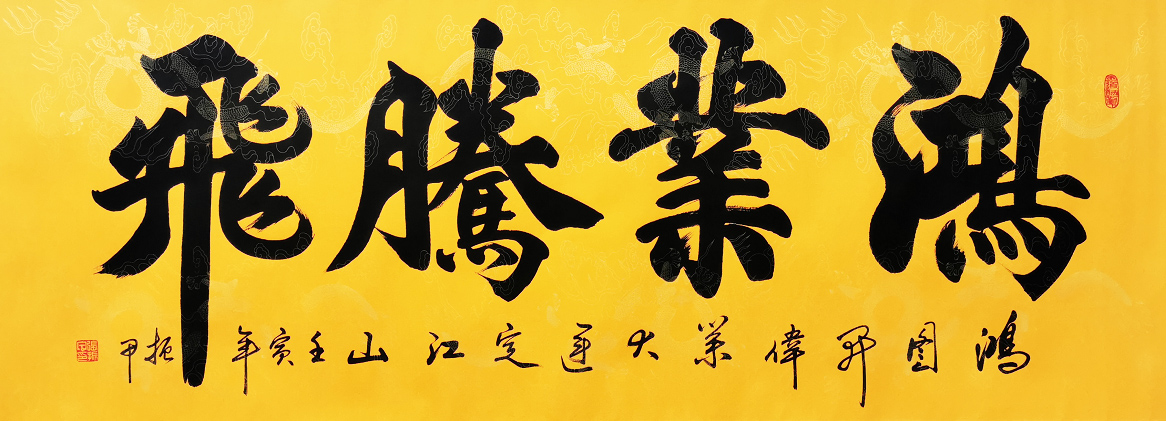 鴻業騰飛
鴻圖開偉業大運定江山壬寅年振甲